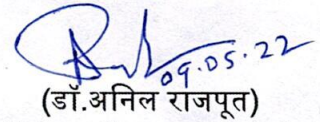 09.05.22
(डॉ.अनिल राजपूत)